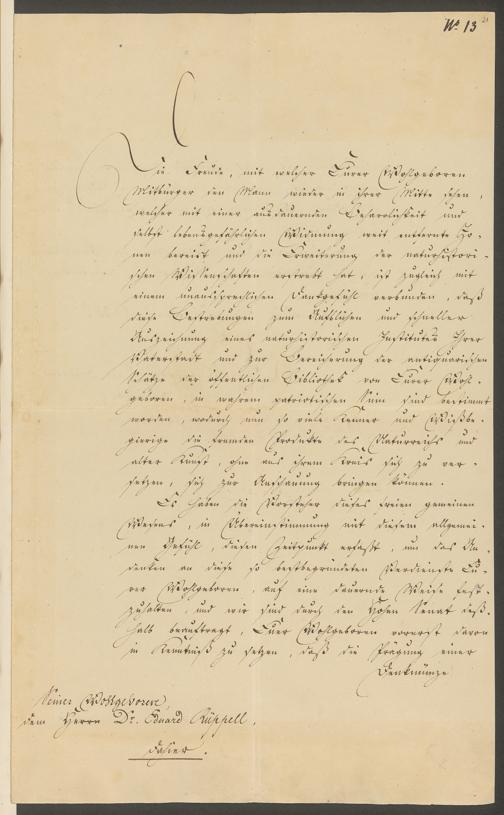 No 13
Die Freude, mit welcher Eurer Wohlgeboren
Mitbürger den Mann wieder in ihrer Mitte sehen,
welcher mit einer ausdauernden Beharrlichkeit und
selbst lebensgefährlichen Widmung weit entfernte Zo-
nen bereist und die Erweiterung der naturhistori-
schen Wissenschaften erstrebt hat, ist zugleich mit
einem unaussprechlichen Dankgefühl verbunden, daß
diese Bestrebungen zum Aufblühen und schneller
Auszeichnung eines naturhistorischen Institutes Ihrer
Vaterstadt und zur Bereicherung der antiquarischen
Schätze der öffentlichen Bibliothek von Eurer Wohl-
geboren, in wahrem patriotischen Sinn sind bestimmt
worden, wodurch nun so viele Kenner und Wißbe-
gierige die fremden Produkte des Naturreichs und
alter Kunst, ohne aus ihrem Kreis sich zu ver-
setzen, sich zur Anschauung bringen können.
Es haben die Vorsteher dieses freien gemeinen
Wesens, in Übereinstimmung mit diesem allgemei-
nen Gefühl, diesen Zeitpunkt erfaßt, um das An-
denken an diese so bestbegründeten Verdienste Eu-
rer Wohlgeboren, auf eine dauernde Weise fest-
zuhalten, und wir sind durch den Hohen Senat deß-
halb beauftragt, Euer Wohlgeboren vorerst davon
in Kenntniß zu setzen, daß die Prägung einer
Denkmünze
Seiner Wohlgeboren
dem Herrn Dr. Eduard Rüppell.
dahier.